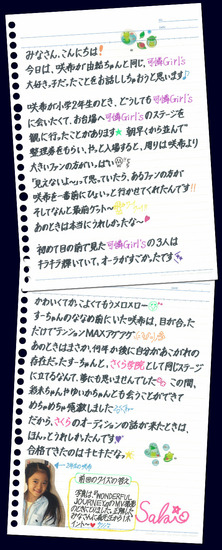 みなさん、こんにちは!
今日は、咲希が由結ちゃんと同じ、可憐Girl's
大好きっ子だったことをお話ししちゃおうと思います♪
咲希が小学2年生のとき、どうしても可憐Girl's
に会いたくて、お台場へ可憐Girl'sのステージを
観に行ったことがあります★朝早くから並んで
整理券をもらい、やっと入場すると、周りは咲希より
大きいファンの方がいっぱい
「見えないよ〜」って思っていたら、あるファンの方が
咲希を一番前にひょいっと行かせてくれたんです!!
そしてなんと最前ゲット〜
あのときは本当にうれしかったな〜♥
初めて目の前で見た可憐Girl'sの3人は
キラキラ輝いていて、オーラがすごかったです
かわいくてか、こよくてもうメロメロー
すーちゃんのななめ前にいた咲希は、目が合った
だけでテンションMAXアゲアゲ
あのときはまさか、何年か後に自分があこがれの
存在だったすーちゃんと、さくら学院として同じステージ
に立てるなんて、夢にも思いませんでした この間、
彩未ちゃんやゆいかちゃんとも会うことができて
めちゃめちゃ感激しました
だから、さくらのオーディションの話が来たときは、
ほんっとうれしかったんです♥
合格できたのはキセキだな。
前回のクイズの答え
写真は『WONDERFUL
JOURNEY』のMV撮影
のときになりました。正解した
みなさんに森先生から1ポ
イント〜
Saki